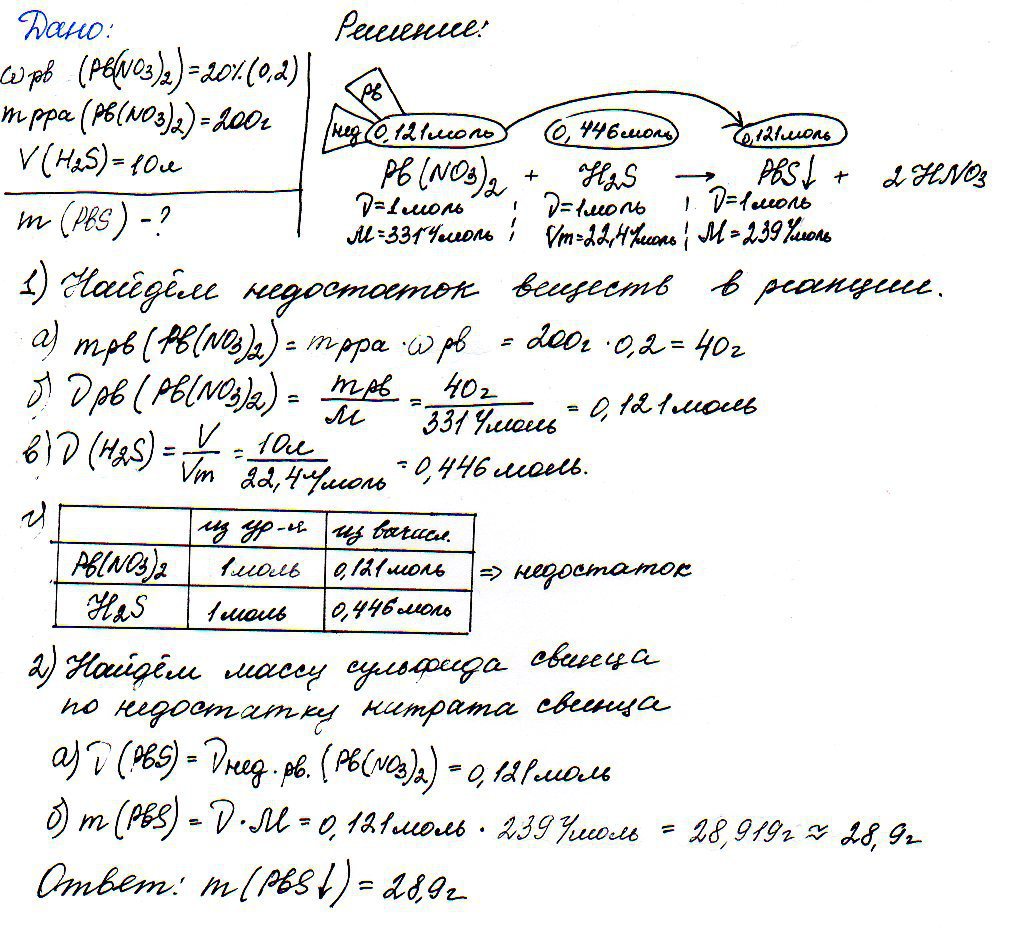 Дано:
ωрв (Pb(NO3)2) = 20% (0,2)
mрра (Pb(NO3)2) = 200г
V (H2S) = 10л
m (PbS) - ?
Решение:
рв
нед 0,121моль 0,446моль 0,121моль
Pb(NO3)2 + H2S → PbS↓ + 2HNO3
ν=1моль ¦ ν=1моль ¦ ν=1моль
M=331г/моль ¦ Vm=22,4л/моль ¦ M=239г/моль
1) Найдём недостаток веществ в реакции.
а) mрв (Pb(NO3)2) = mрра · ωрв = 200г · 0,2 = 40г
б) νрв (Pb(NO3)2) = mрв/M = 40г/331г/моль = 0,121моль
в) ν (H2S) = V/Vm = 10л/22,4л/моль = 0,446моль.
г)
из ур-я из вычисл.
Pb(NO3)2 1моль 0,121моль => недостаток
H2S 1моль 0,446моль
2) Найдём массу сульфида свинца
по недостатку нитрата свинца
а) ν (PbS) = νнед.рв. (Pb(NO3)2) = 0,121моль
б) m (PbS) = ν · M = 0,121моль · 239г/моль = 28,919г ≈ 28,9г
Ответ: m (PbS↓) = 28,9г